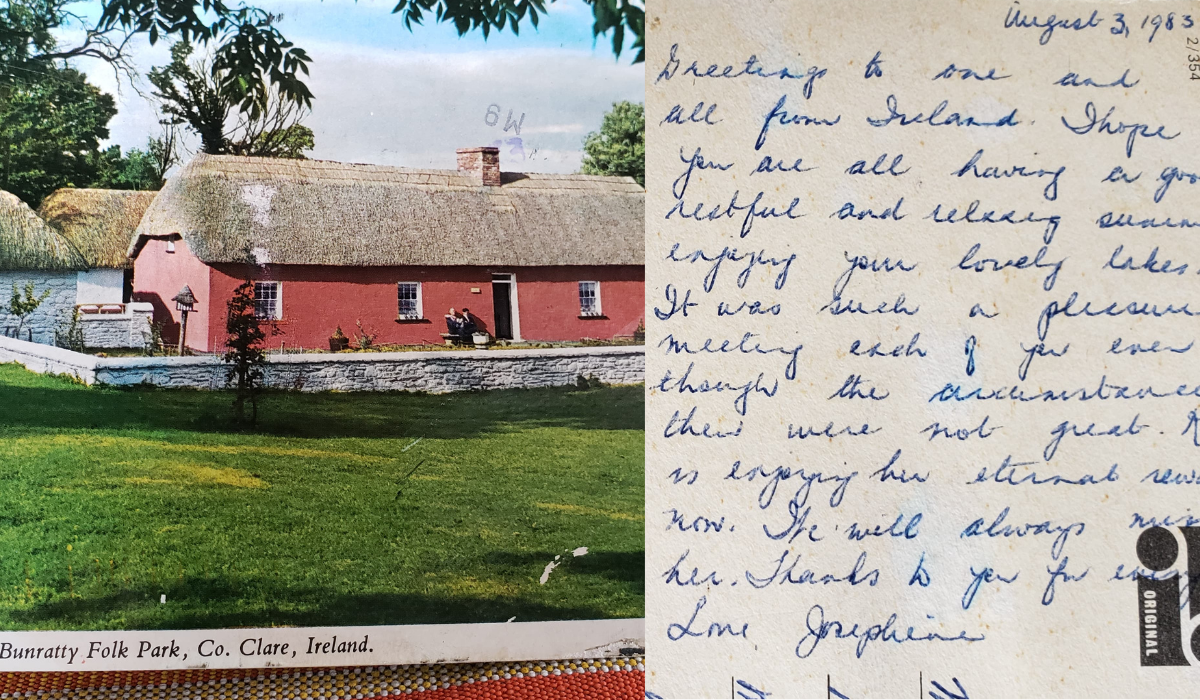 GW
Bunratty Folk Park, Co. Clare, Ireland.
August 3, 1983
2/354
Greetings to one and
all from Ireland. I hope
you are all having a goo
restful and relaxing summ
enjoying your lovely lakes.
It was such a pleasure
meeting each of you even
though the circumstances
then were not great. R
is enjoying her eternal rewa
now. We will always miss
her. Thanks to you for every
Love Josephine
ORIGINAL